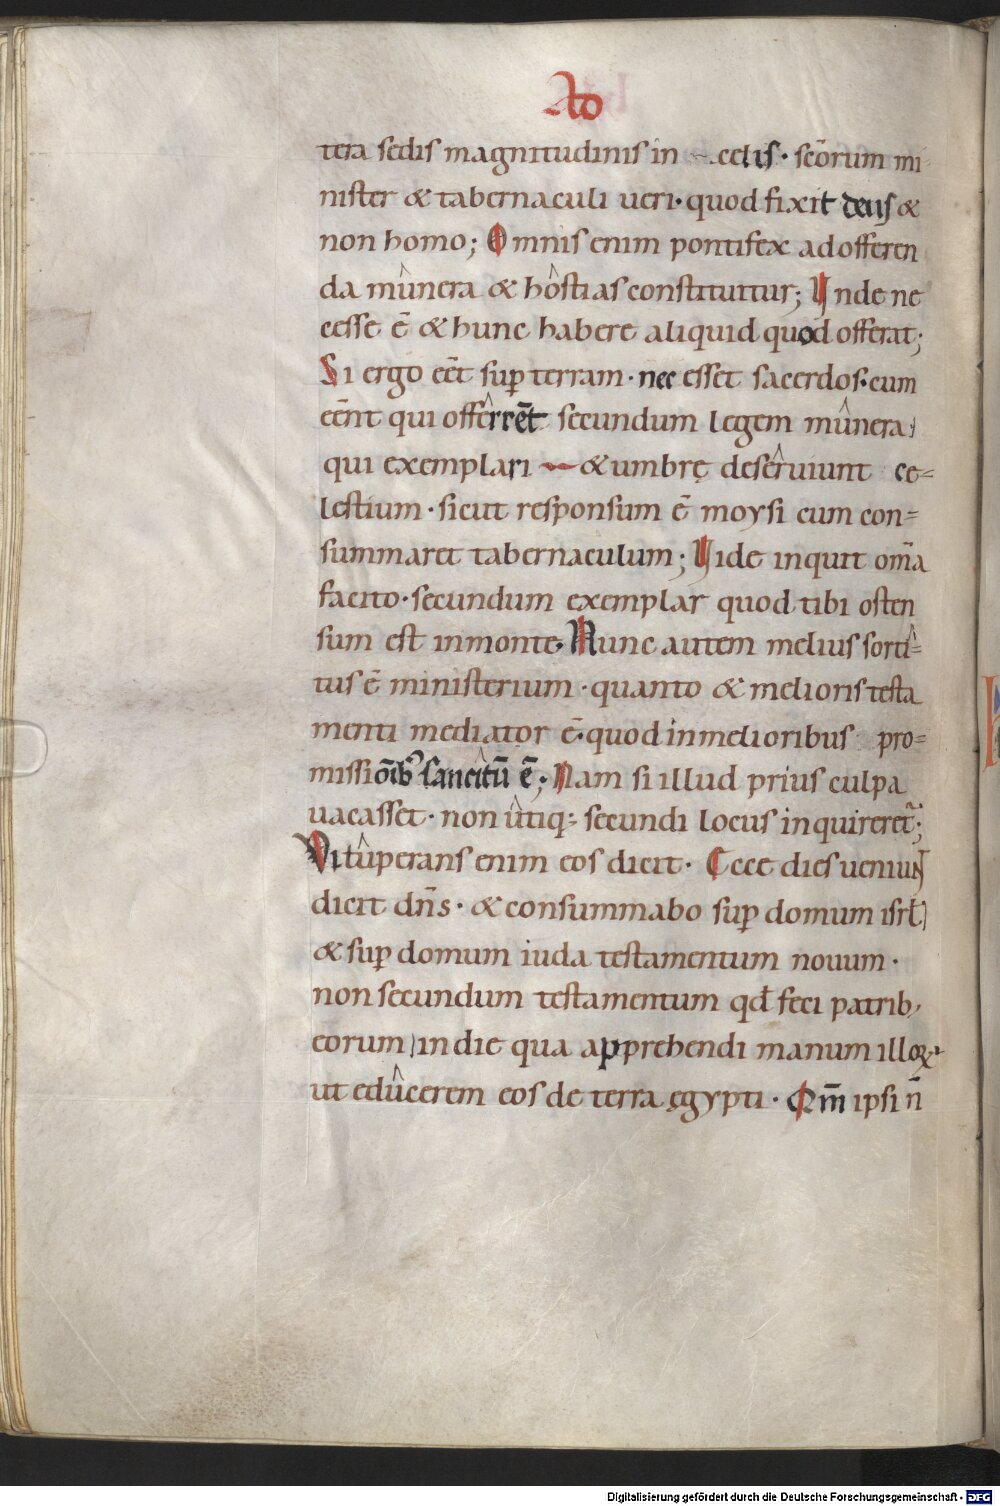 Ad
tera sedis magnitudinis in celis · scōrum mi
nister & tabernaculi ueri · quod fixit deus &
non homo; Omnis enim pontifex ad offeren
da munera & hostias constituitur; Unde ne
cesse ē & hunc habere aliquid quod offerat;
Si ergo eēt sup̄ terram · nec esset sacerdos · cum
eēnt qui offerrēt secundum legem munera;
qui exemplari & umbrę deseruiunt ce-
lestium · sicut responsum ē moysi cum con-
summaret tabernaculum; Uide inquit om̄a
facito · secundum exemplar quod tibi osten
sum est in monte · Nunc autem melius sorti-
tus ē ministerium · quanto & melioris testa
menti mediator ē · quod in melioribus pro-
missiōib; sancitū ē; Nam si illud prius culpa
uacasset · non utiq; secundi locus inquireret̄;
Vituperans enim eos dicit · Ecce dies ueniunt
dicit dn̄s · & consummabo sup̄ domum isrł
& sup̄ domum iuda testamentum nouum ·
non secundum testamentum qđ feci patrib;
eorum in die qua apprehendi manum illoꝝ
ut educerem eos de terra ęgypti · Qm̄ ipsi n̄
Digitalisierung gefördert durch die Deutsche Forschungsgemeinschaft - DFG